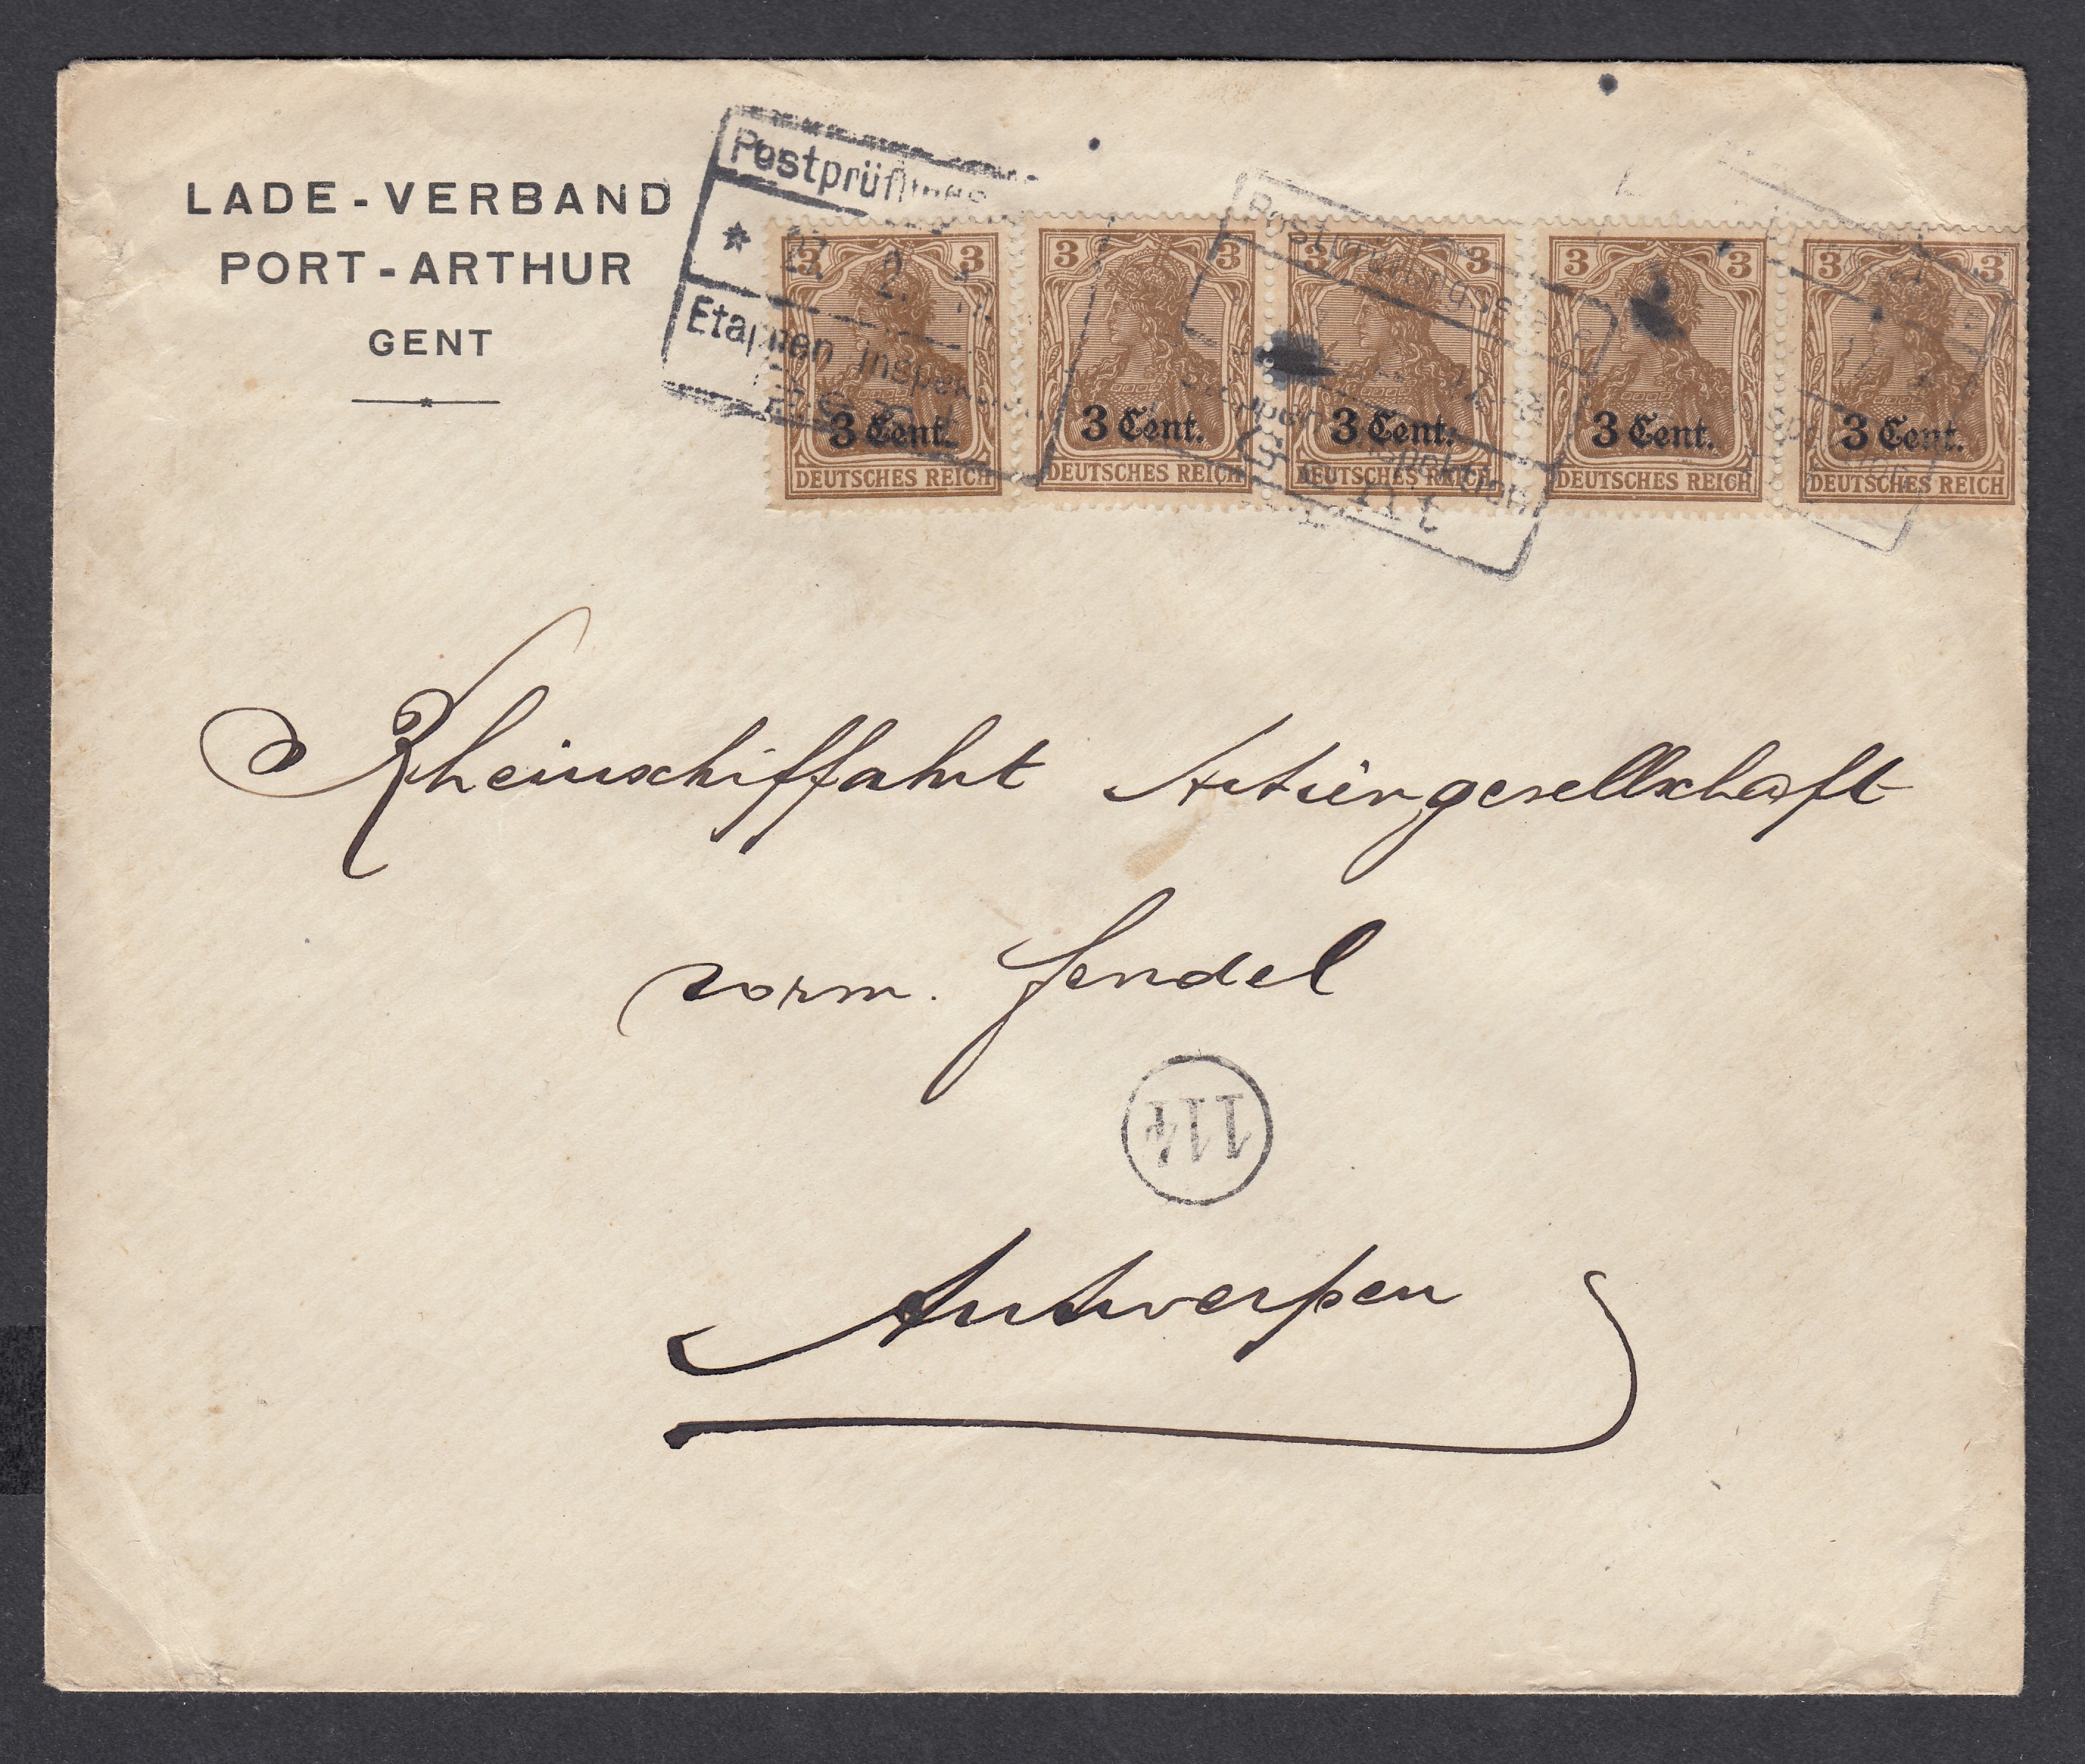 LADE-VERBAND
PORT-ARTHUR
GENT
Postprüfungs
* 2.
Etappen inspektion
3 3 3 3 3 3 3 3 3 3
3 Cent. 3 Cent. 3 Cent. 3 Cent. 3 Cent.
DEUTSCHES REICH DEUTSCHES REICH DEUTSCHES REICH DEUTSCHES REICH DEUTSCHES REICH
Postprüfungs
Etappen inspektion
Gent
Rheinschiffahrt Actiengesellschaft
vorm. Fendel
114
Antwerpen